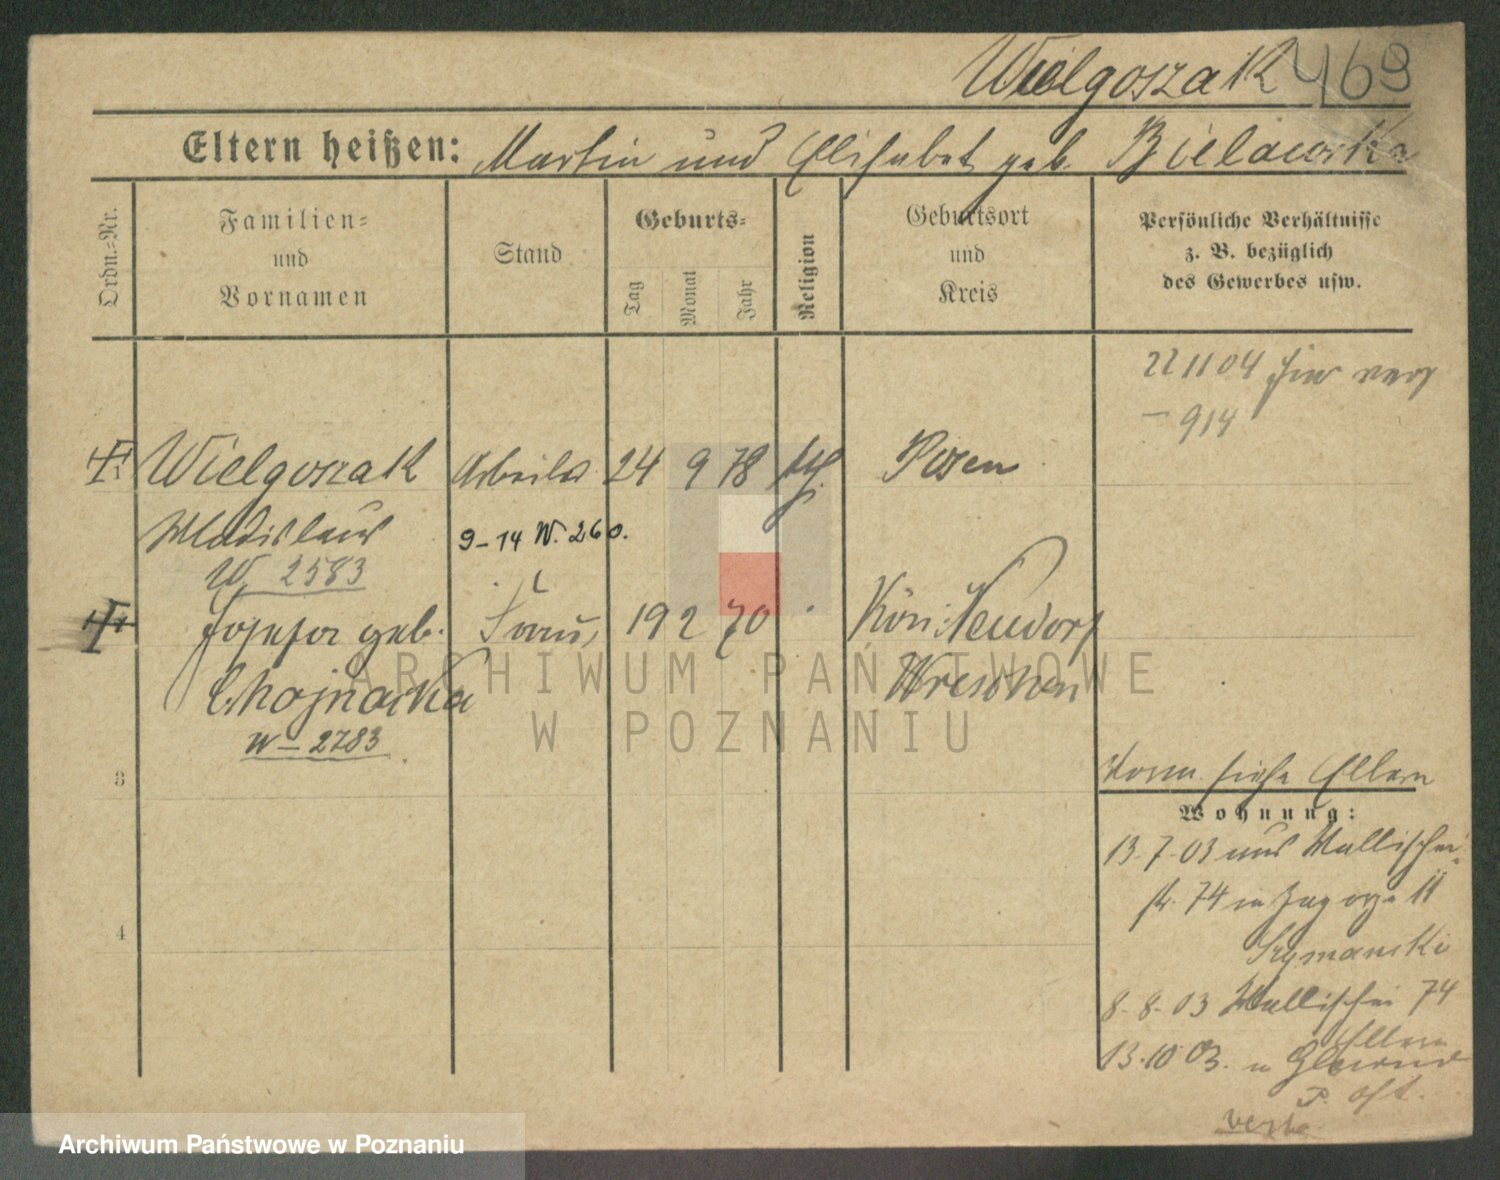 Wielgoszak 469
Eltern heißen: Martin und Elisabet geb. Bielawska
Ordn.=Nr.
Familien=
und
Vornamen
Stand
Geburts=
Tag
Monat
Jahr
Religion
Geburtsort
und
Kreis
Persönliche Verhältnisse
z. B. bezüglich
des Gewerbes usw.
22 11 04 hier
– 914
Wielgoszak Arbeiter 24 9 78 kth. Posen
Wladislaus 9–14 W. 260.
W 2583
Josefa geb. Frau, 19 2 70 Kön. Neudorf
Chojnacka Wreschen
W – 2783
3
Vorm. siehe Eltern
Wohnung:
13.7.03 aus Wallischei
str. 74 in Zagorze 11
Szymanski
8.8.03 Wallischei 74
Eltern
13.10.03. n
P. Ost.
verh.
4
ARCHIWUM PAŃSTWOWE
W POZNANIU
Archiwum Państwowe w Poznaniu